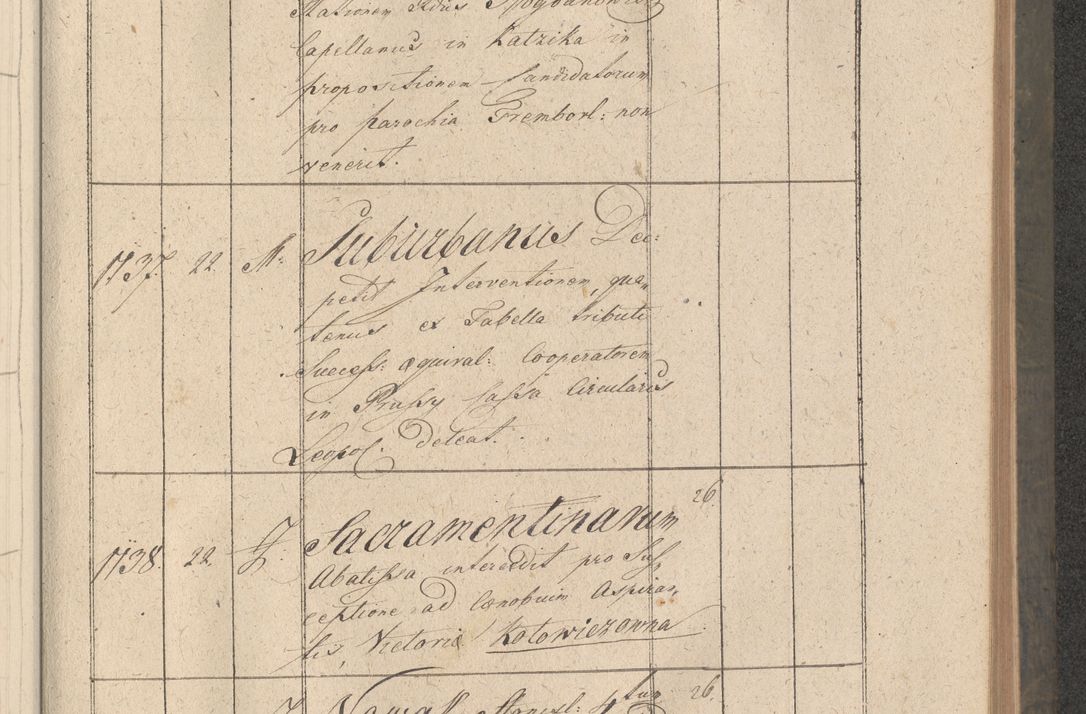 Capellanus in Katzika in
propositionem Candidatorum
pro parochia Trembovl: non
venerit.
1737. 22. M. Suburbanus Dec:
petit Interventionem, qua„
tenus ex Tabella tributi
Success: aequival: Cooperatorem
in Prussy Cassa Circularis
Leopol. deleat.
1738. 22. J. Sacramentinarum 26
Abatissa intercedit pro Sus„
ceptione ad Caenobium Aspiran„
tis, Victoriae Kotowiczowna
26.